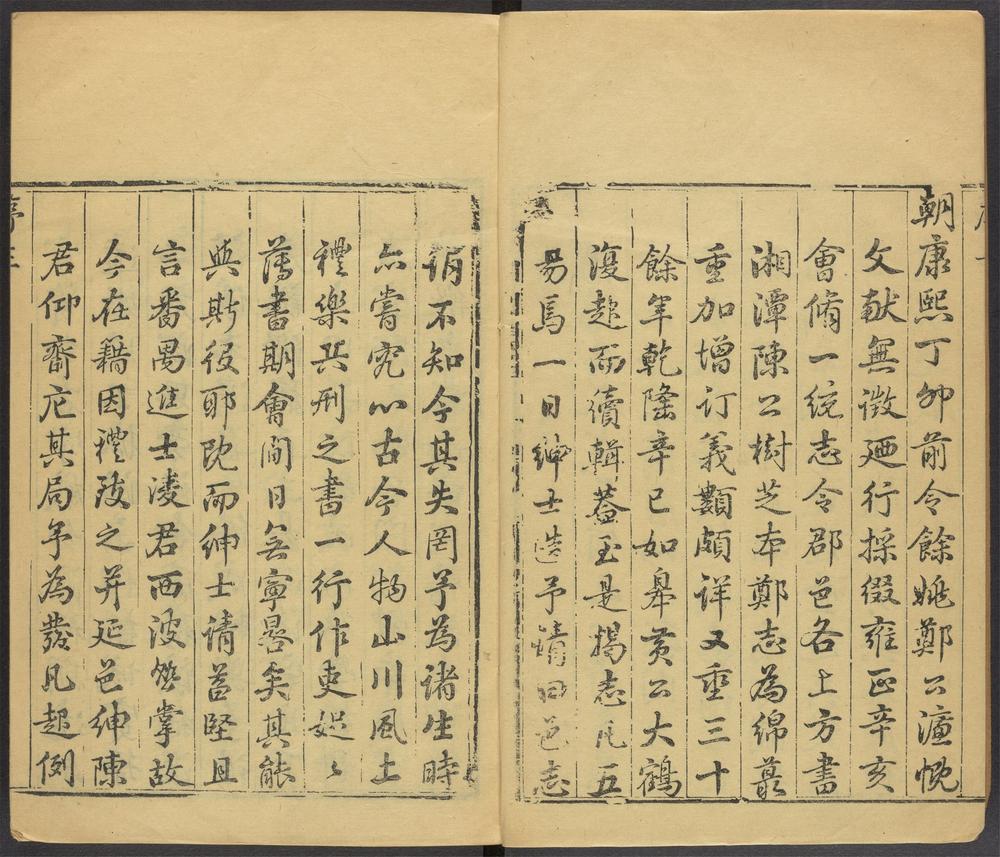 朝康熙丁卯前令餘姚鄭公濂慨
文献無徵廼行採綴雍正辛亥
會脩一統志令郡邑各上方書
湘潭陳公樹芝本鄭志為綿蕞
重加增訂義類頗詳又重三十
餘年乾隆辛巳如皋黃公大鶴
復起而續輯葢至是揭志凡五
易焉一日紳士造予請曰邑志
不知今其失罔予為諸生時
亦嘗究心古今人物山川風土
禮樂兵刑之書一行作吏娖〻
簿書期會間日無寧晷矣其能
與斯役耶既而紳士請益堅且
言番禺進士淩君西波學掌故
今在籍因禮致之并延邑紳陳
君仰齋庀其局予為發凡起例